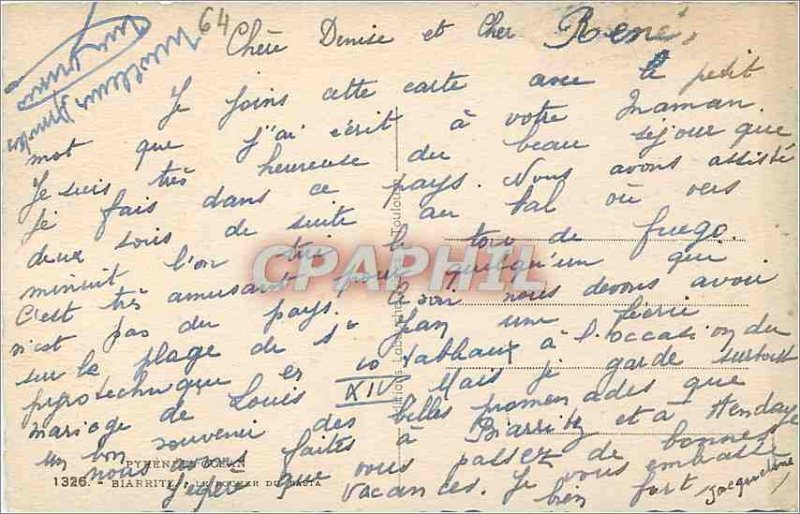 64
Chère Denise et Cher René,
Je joins cette carte avec le petit
mot que j'ai écrit à votre Maman.
Je suis très heureuse du beau séjour que
je fais dans ce pays. Nous avons assisté
deux soirs de suite au bal où vers
minuit l'on tire le toro de fuego.
C'est très amusant pour quelqu'un qui
n'est pas du pays. Ce soir nous devons avoir
sur la plage de St Jean une féerie
pyrotechnique en 10 tableaux à l'occasion du
mariage de Louis XIV Mais je garde surtout
un bon souvenir des belles promenades que
nous avons faites à Biarritz et à Hendaye
J'espère que vous passez de bonnes
vacances. Je vous embrasse
bien fort Jacqueline
PYRÉNÉES-OCÉAN
1326. - BIARRITZ - LE ROCHER DU BASTA
Toulouse
CPAPHIL